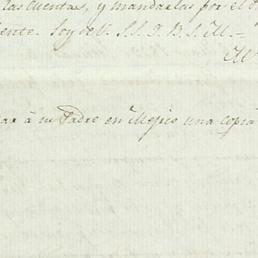 las Cuentas, y mandarlas por el
ente. Soy de V. S. S. Q. B. S. M. =
ar á su Padre en Mejico una copia